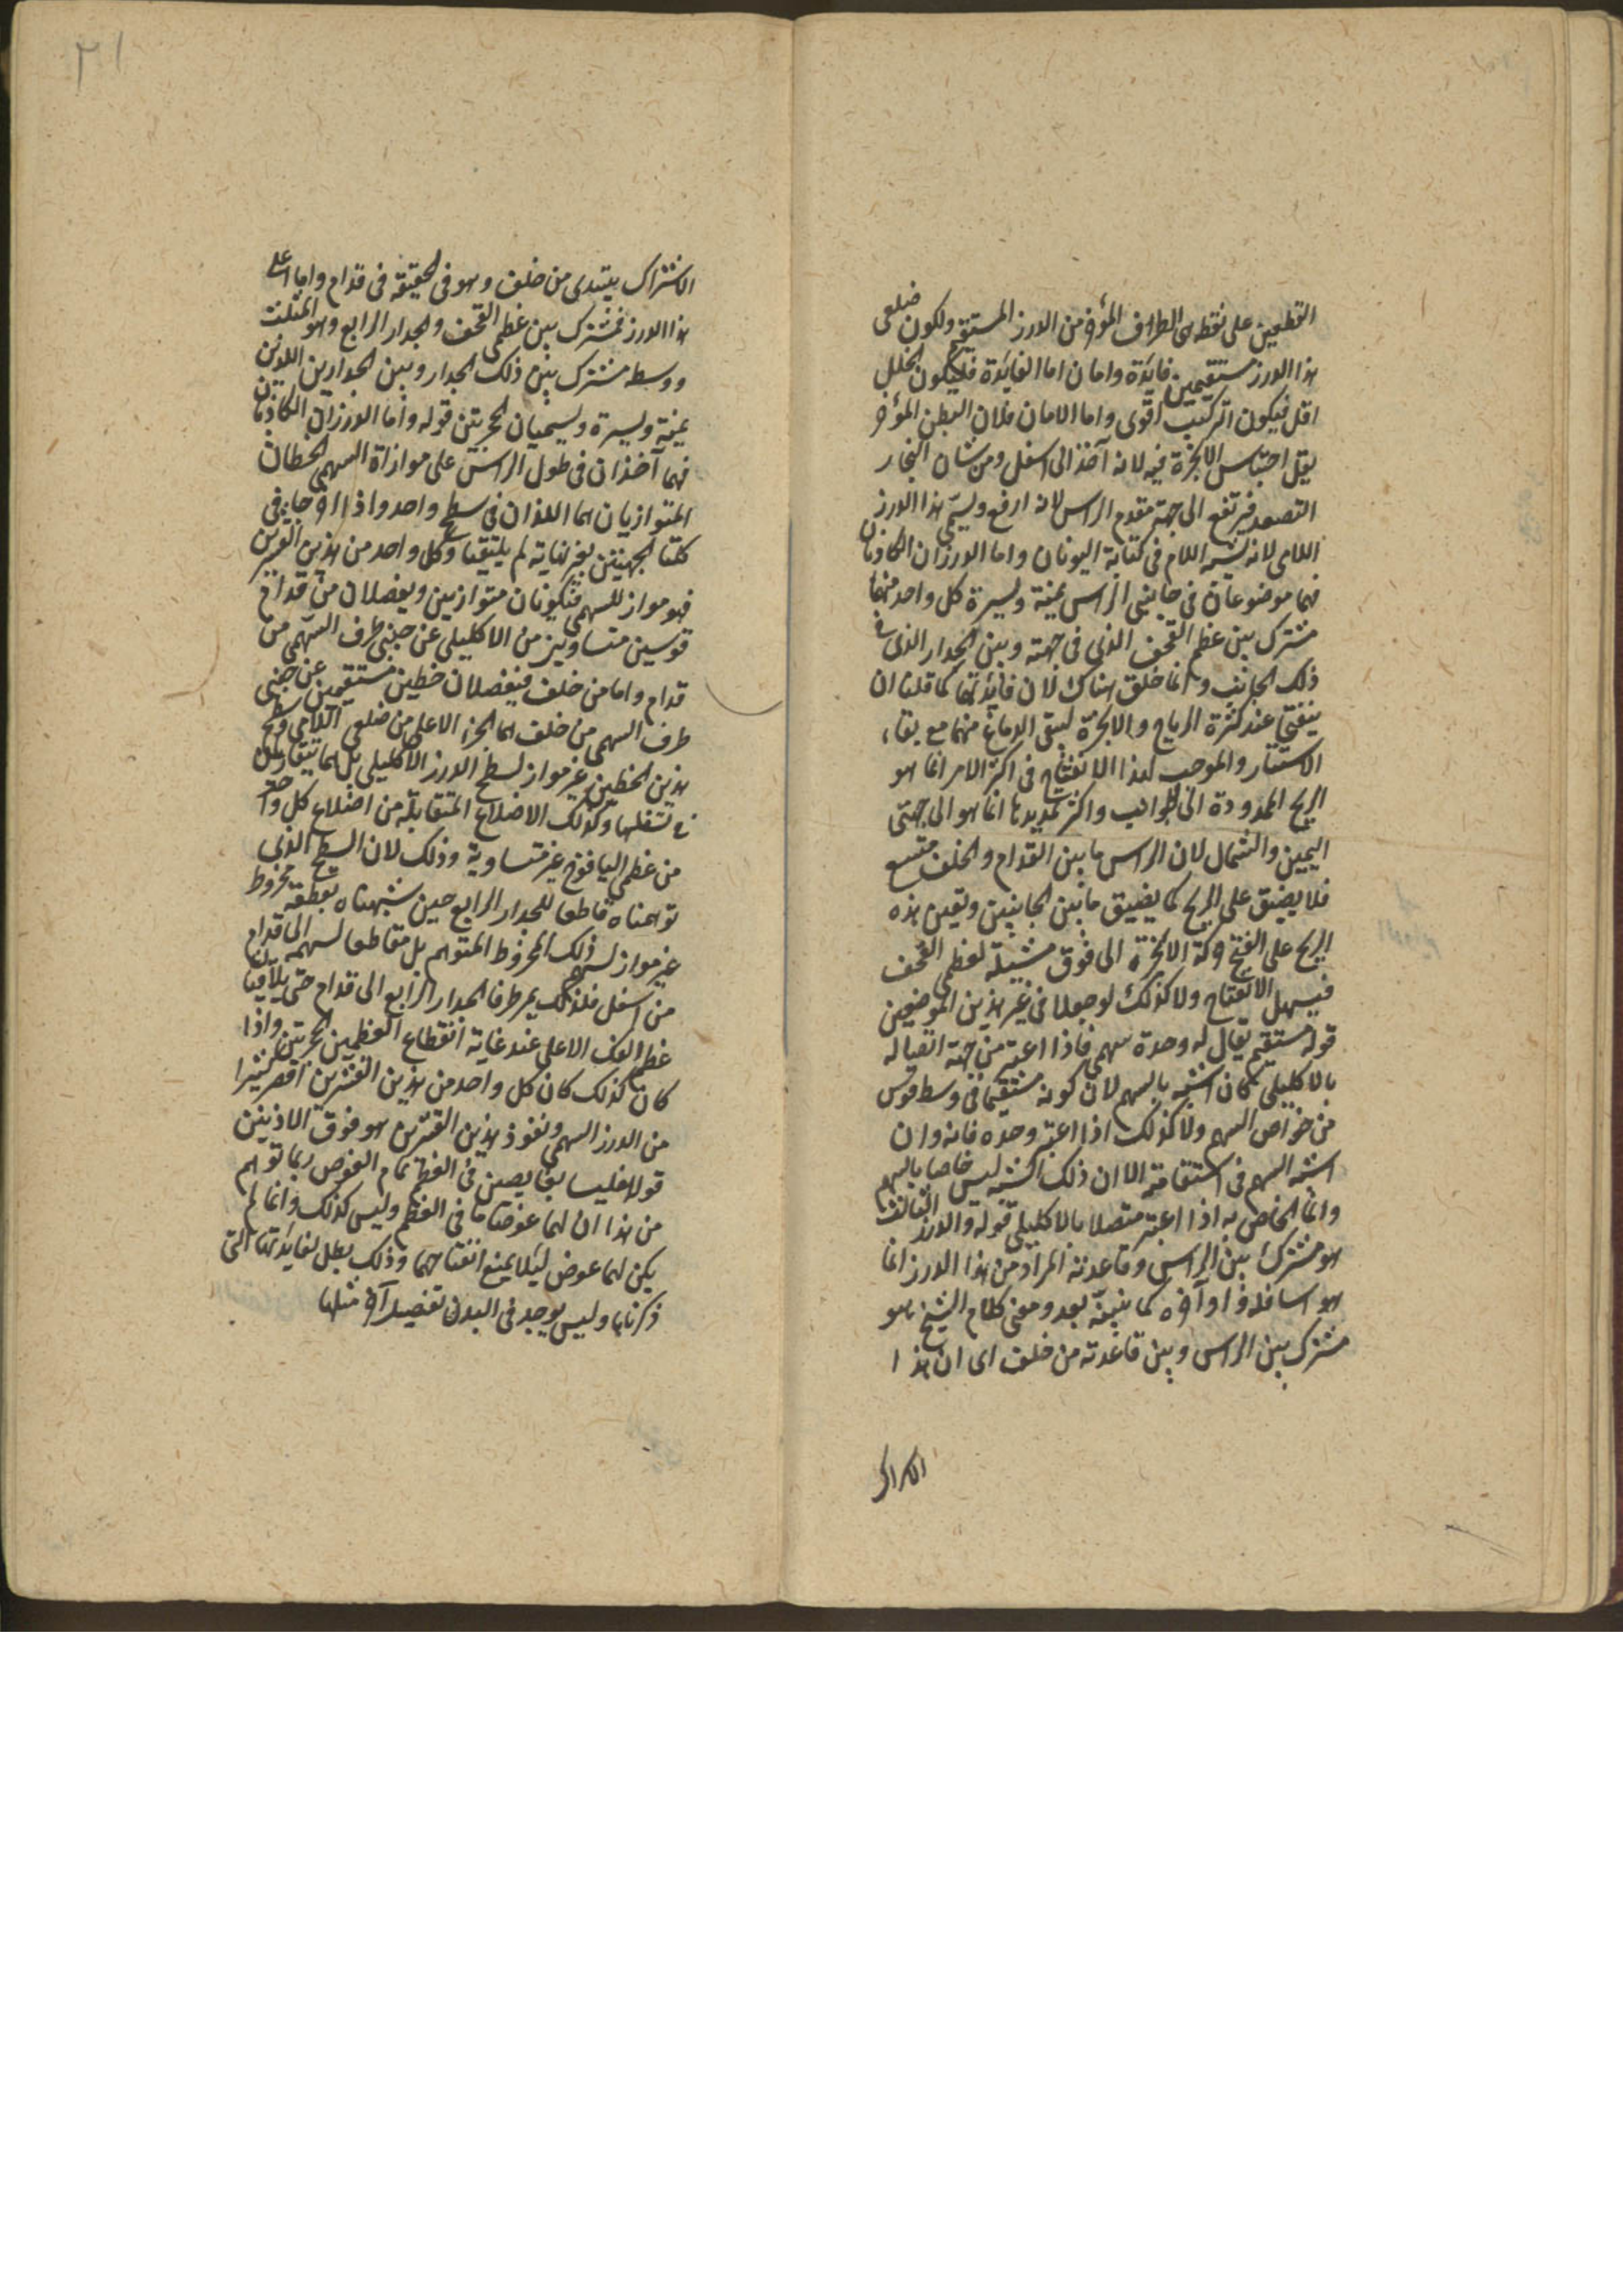 القطعين على نقطه هى الطرف المؤخر من الدرز المستقيم ولكون ضلعى
هذا الدرز مستقيمين فايدة وامان اما الفايدة فليكون الخلل
اقل فيكون التركيب اقوى واما الامان فلان البطن المؤخر
يقل احتباس الابخرة فيه لانه آخذ الى اسفل ومن شان البخار
التصعد فيرتفع الى جهة مقدم الراس لانه ارفع ويسمى هذا الدرز
اللامى لانه يشبه اللام فى كتابة اليونان واما الدرزان الكاذبان
فهما موضوعان فى جانبى الراس يمنة ويسرة كل واحد منهما
مشترك بين عظم القحف الذى فى جهته وبين الجدار الذى فى
ذلك الجانب وانما خلق هناك لان فايدتها كما قلنا ان
ينفتحا عند كثرة الرياح والابخرة لينقى الدماغ منهما مع بقاء
الاستتار والموجب لهذا الانفتاح فى اكثر الامر انما هو
الريح الممدودة الى الجوانب واكثر تمديدها انما هو الى جهتى
اليمين والشمال لان الراس ما بين القدام والخلف متسع
فلا يضيق على الريح كما يضيق ما بين الجانبين وتعين هذه
الريح على الفتح حركة الابخرة الى فوق مشيلة لعظمى القحف
فيسهل الانفتاح ولا كذلك لو جعلا فى غير هذين الموضعين
قوله مستقيم يقال له وحده سهمى فاذا اعتبر من جهة اتصاله
بالاكليلى كان اشبه بالسهم لان كونه مستقيما فى وسط قوس
من خواص السهم ولا كذلك اذا اعتبر وحده فانه وان
اشبه السهم فى استقامته الا ان ذلك الشبه ليس خاصا بالسهم
وانما الخاص به اذا اعتبر متصلا بالاكليلى قوله والدرز الثالث
هو مشترك بين الراس وقاعدته المراد من هذا الدرز انما
هو اسافله او آخره كما نبينه بعد ومعنى كلام الشيخ هو
مشترك بين الراس وبين قاعدته من خلف اى ان هذا
٣١
الاشتراك يبتدى من خلف وهو فى الحقيقه فى قدام واما اعلى
هذا الدرز فمشترك بين عظمى القحف والجدار الرابع وهو المثلث
ووسطه مشترك بين ذلك الجدار وبين الجدارين اللذين
يمنة ويسرة ويسميان الحجريتين قوله واما الدرزان الكاذبان
فهما آخذان فى طول الراس على موازاة السهمى الخطان
المتوازيان هما اللذان فى سطح واحد واذا اخرجا فى
كلتا الجهتين بغير نهاية لم يلتقيا وكل واحد من هذين القشرين
فهو مواز للسهمى فيكونان متوازيين ويفصلان من قدام
قوسين متساويتين من الاكليلى عن جنبى طرف السهمى من
قدام واما من خلف فيفصلان خطين مستقيمين عن جنبى
طرف السهمى من خلف هما الجزء الاعلى من ضلعى اللامى وسطح
هذين الخطين غير مواز لسطح الدرز الاكليلى بل هما يتقاربان
فى تسفلهما وكذلك الاضلاع المتقابلة من اضلاع كل واحد
من عظمى اليافوخ غير متساوية وذلك لان السطح الذى
توهمناه قاطعا للجدار الرابع حين شبهناه بقطعة مخروط
غير مواز لسهم ذلك المخروط المتوهم بل مقاطعا لسهمه الى قدام
من اسفل فلذلك يمر طرفا الجدار الرابع الى قدام حتى يلاقيا
عظم الفك الاعلى عند غاية انقطاع العظمين الحجريتين واذا
كان كذلك كان كل واحد من هذين القشرين اقصر كثيرا
من الدرز السهمى ونفوذ هذين القشرين هو فوق الاذنين
قوله فليسا بغايصين فى العظم تمام الغوص ربما توهم
من هذا ان لهما غوصا ما فى العظم وليس كذلك وانما لم
يكن لهما غوص ليلا يمنع انفتاحهما وذلك يبطل لفايدتهما التى
ذكرناها وليس يوجد فى البدن تفصيل آخر مثلها